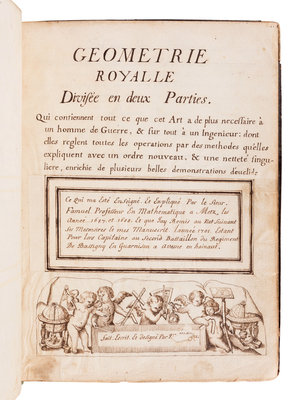 GEOMETRIE
ROYALLE
Divisée en deux Parties.
Qui contiennent tout ce que cet Art a de plus necessaire à
un homme de Guerre, & sur tout à un Ingenieur: dont
elles reglent toutes les operations par des methodes qu'elles
expliquent avec un ordre nouveau, & une netteté singu-
liere, enrichie de plusieurs belles demonstrations d'euclide.
Ce Qui ma Esté Enseigné et Expliqué Par le Sieur
Professeur En Mathematique a Metz, les
Année et Ce que Jay Remis au Net Suivant
Memoires le mes Manuscrit Lannée 1701 Estant
Pour lors Capitaine au Second Battaillon du Regiment
De Bassigny En Guarnison a Avesne en hainaut.
Fait, Ecrit, Et designé Par